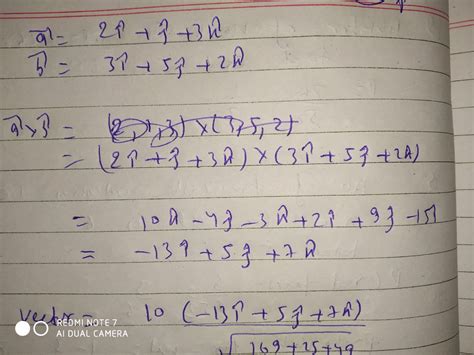 a⃗ = 2î + ĵ + 3k̂
b⃗ = 3î + 5ĵ + 2k̂
a⃗ × b⃗ =
= (2î + ĵ + 3k̂) × (3î + 5ĵ + 2k̂)
= 10k̂ - 4ĵ - 3k̂ + 2î + 9ĵ - 15î
= -13î + 5ĵ + 7k̂
vector = 10 (-13î + 5ĵ + 7k̂)
√169 + 25 + 49
REDMI NOTE 7
AI DUAL CAMERA